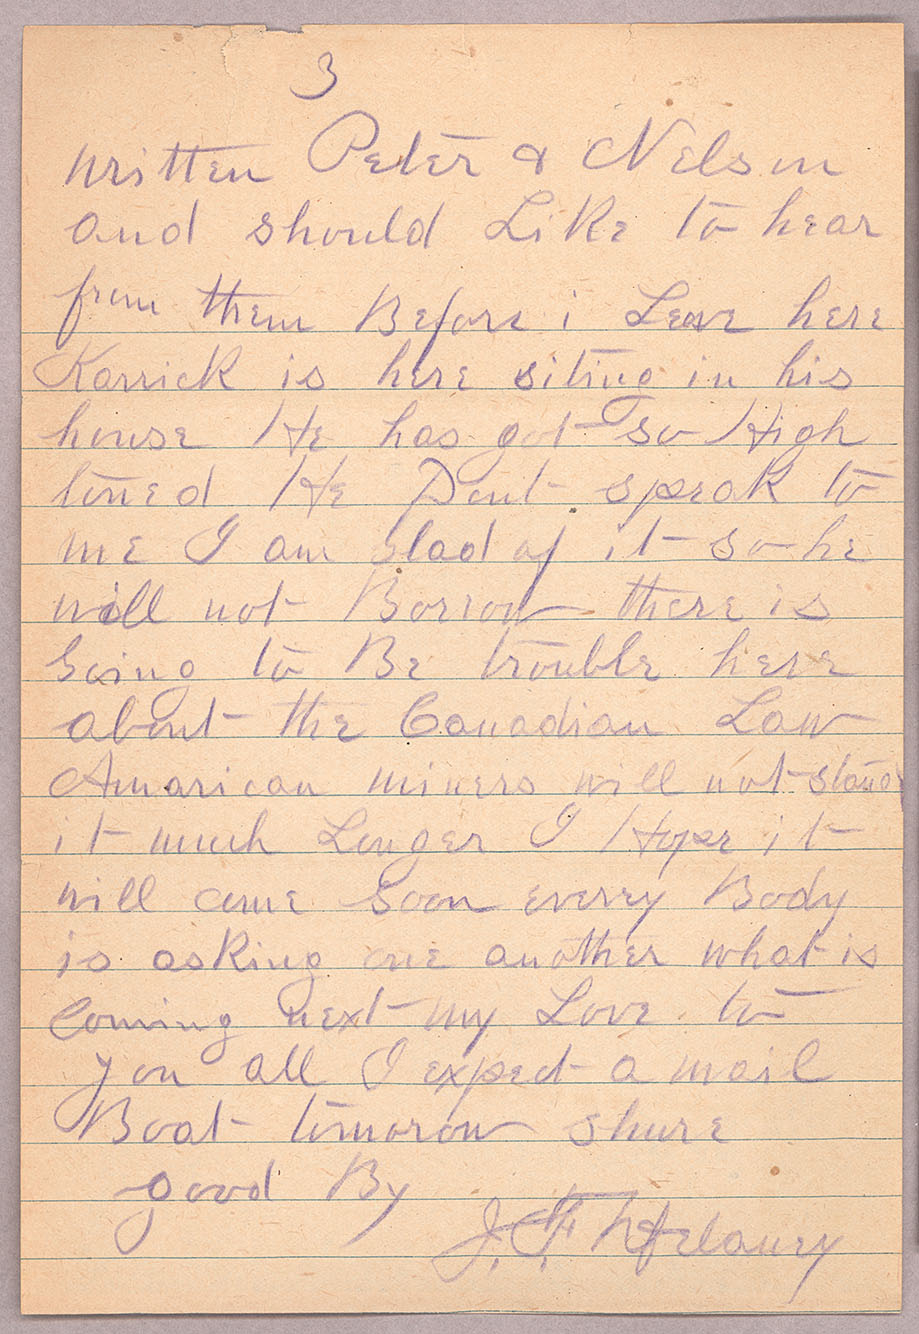 3
written Peter & Nelson
and should Like to hear
from them Before i Leave here
Karrick is here siting in his
house He has got so High
toned He Dont speak to
me I am glad of it so he
will not Borrow there is
Going to Be trouble here
about the Canadian Law
Amarican miners will not stand
it much Longer I Hope it
will come soon everry Body
is asking one another what is
Coming next my Love to
you all I expect a mail
Boat tomorow shure
good By
J. F.